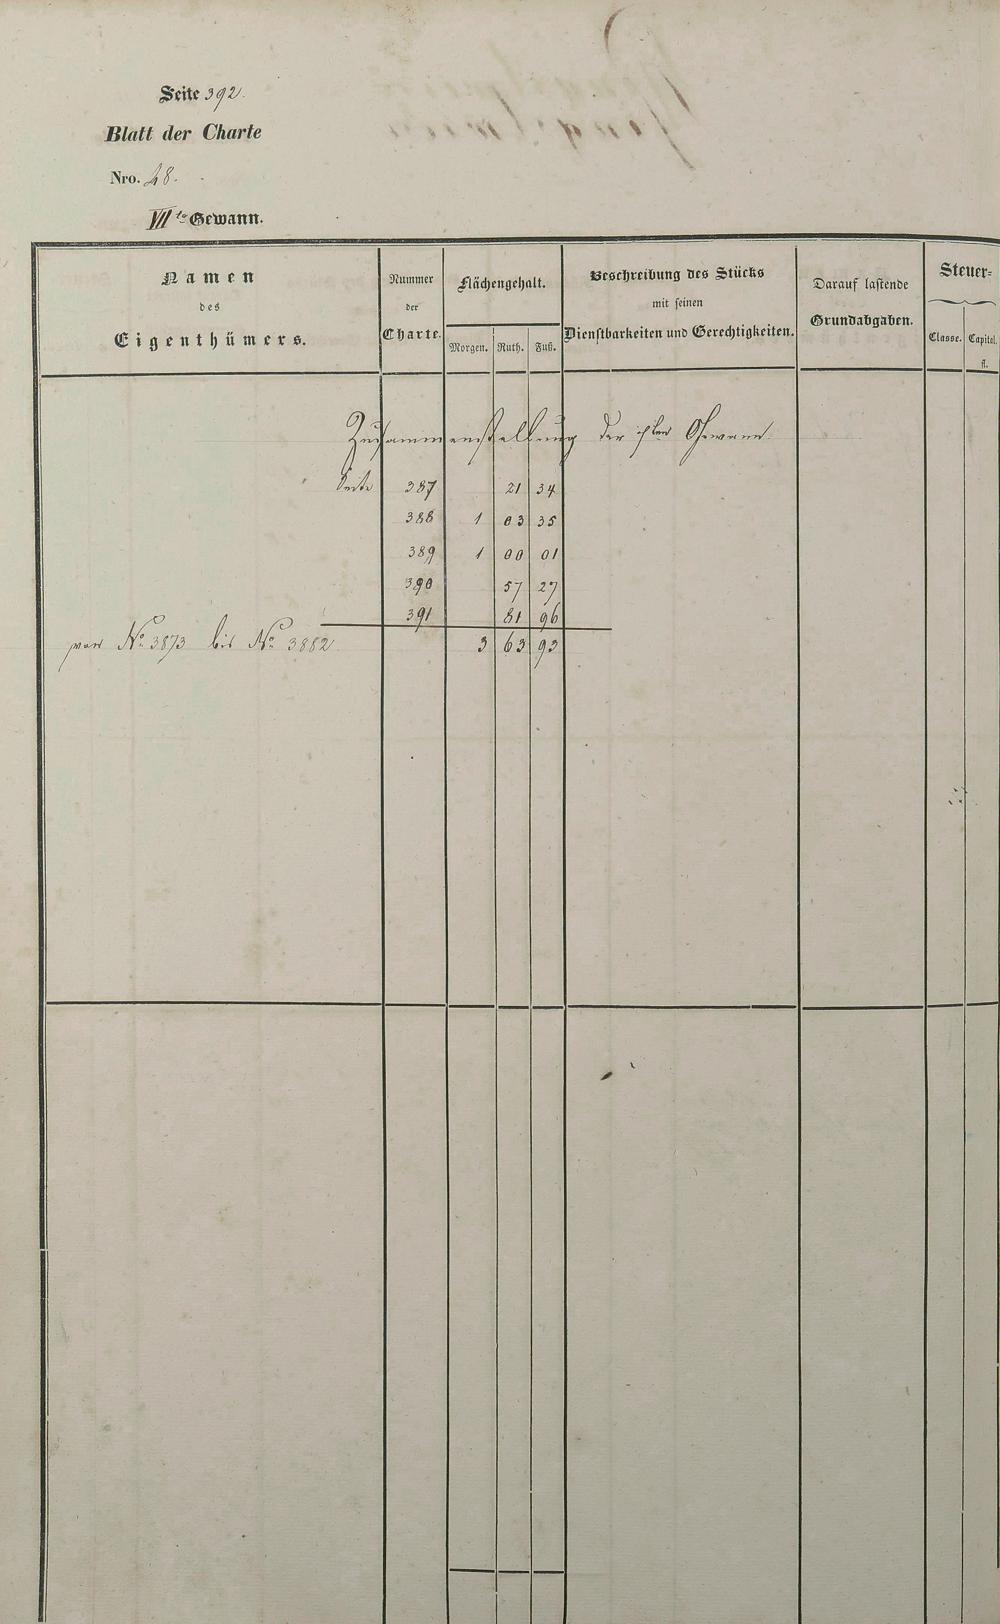 Seite 392.
Blatt der Charte
Nro. 48.
VII te Gewann.
Namen des Eigenthümers.
Nummer der Charte.
Flächengehalt.
Morgen. Ruth. Fuß.
Beschreibung des Stücks mit seinen Dienstbarkeiten und Gerechtigkeiten.
Darauf lastende Grundabgaben.
Steuer-
Classe. Capital.
fl.
Zusammenstellung der Gewann.
Seite 387 21 34
388 1 03 35
389 1 00 01
390 57 27
391 81 96
von No. 3873 bis No. 3882 3 63 93